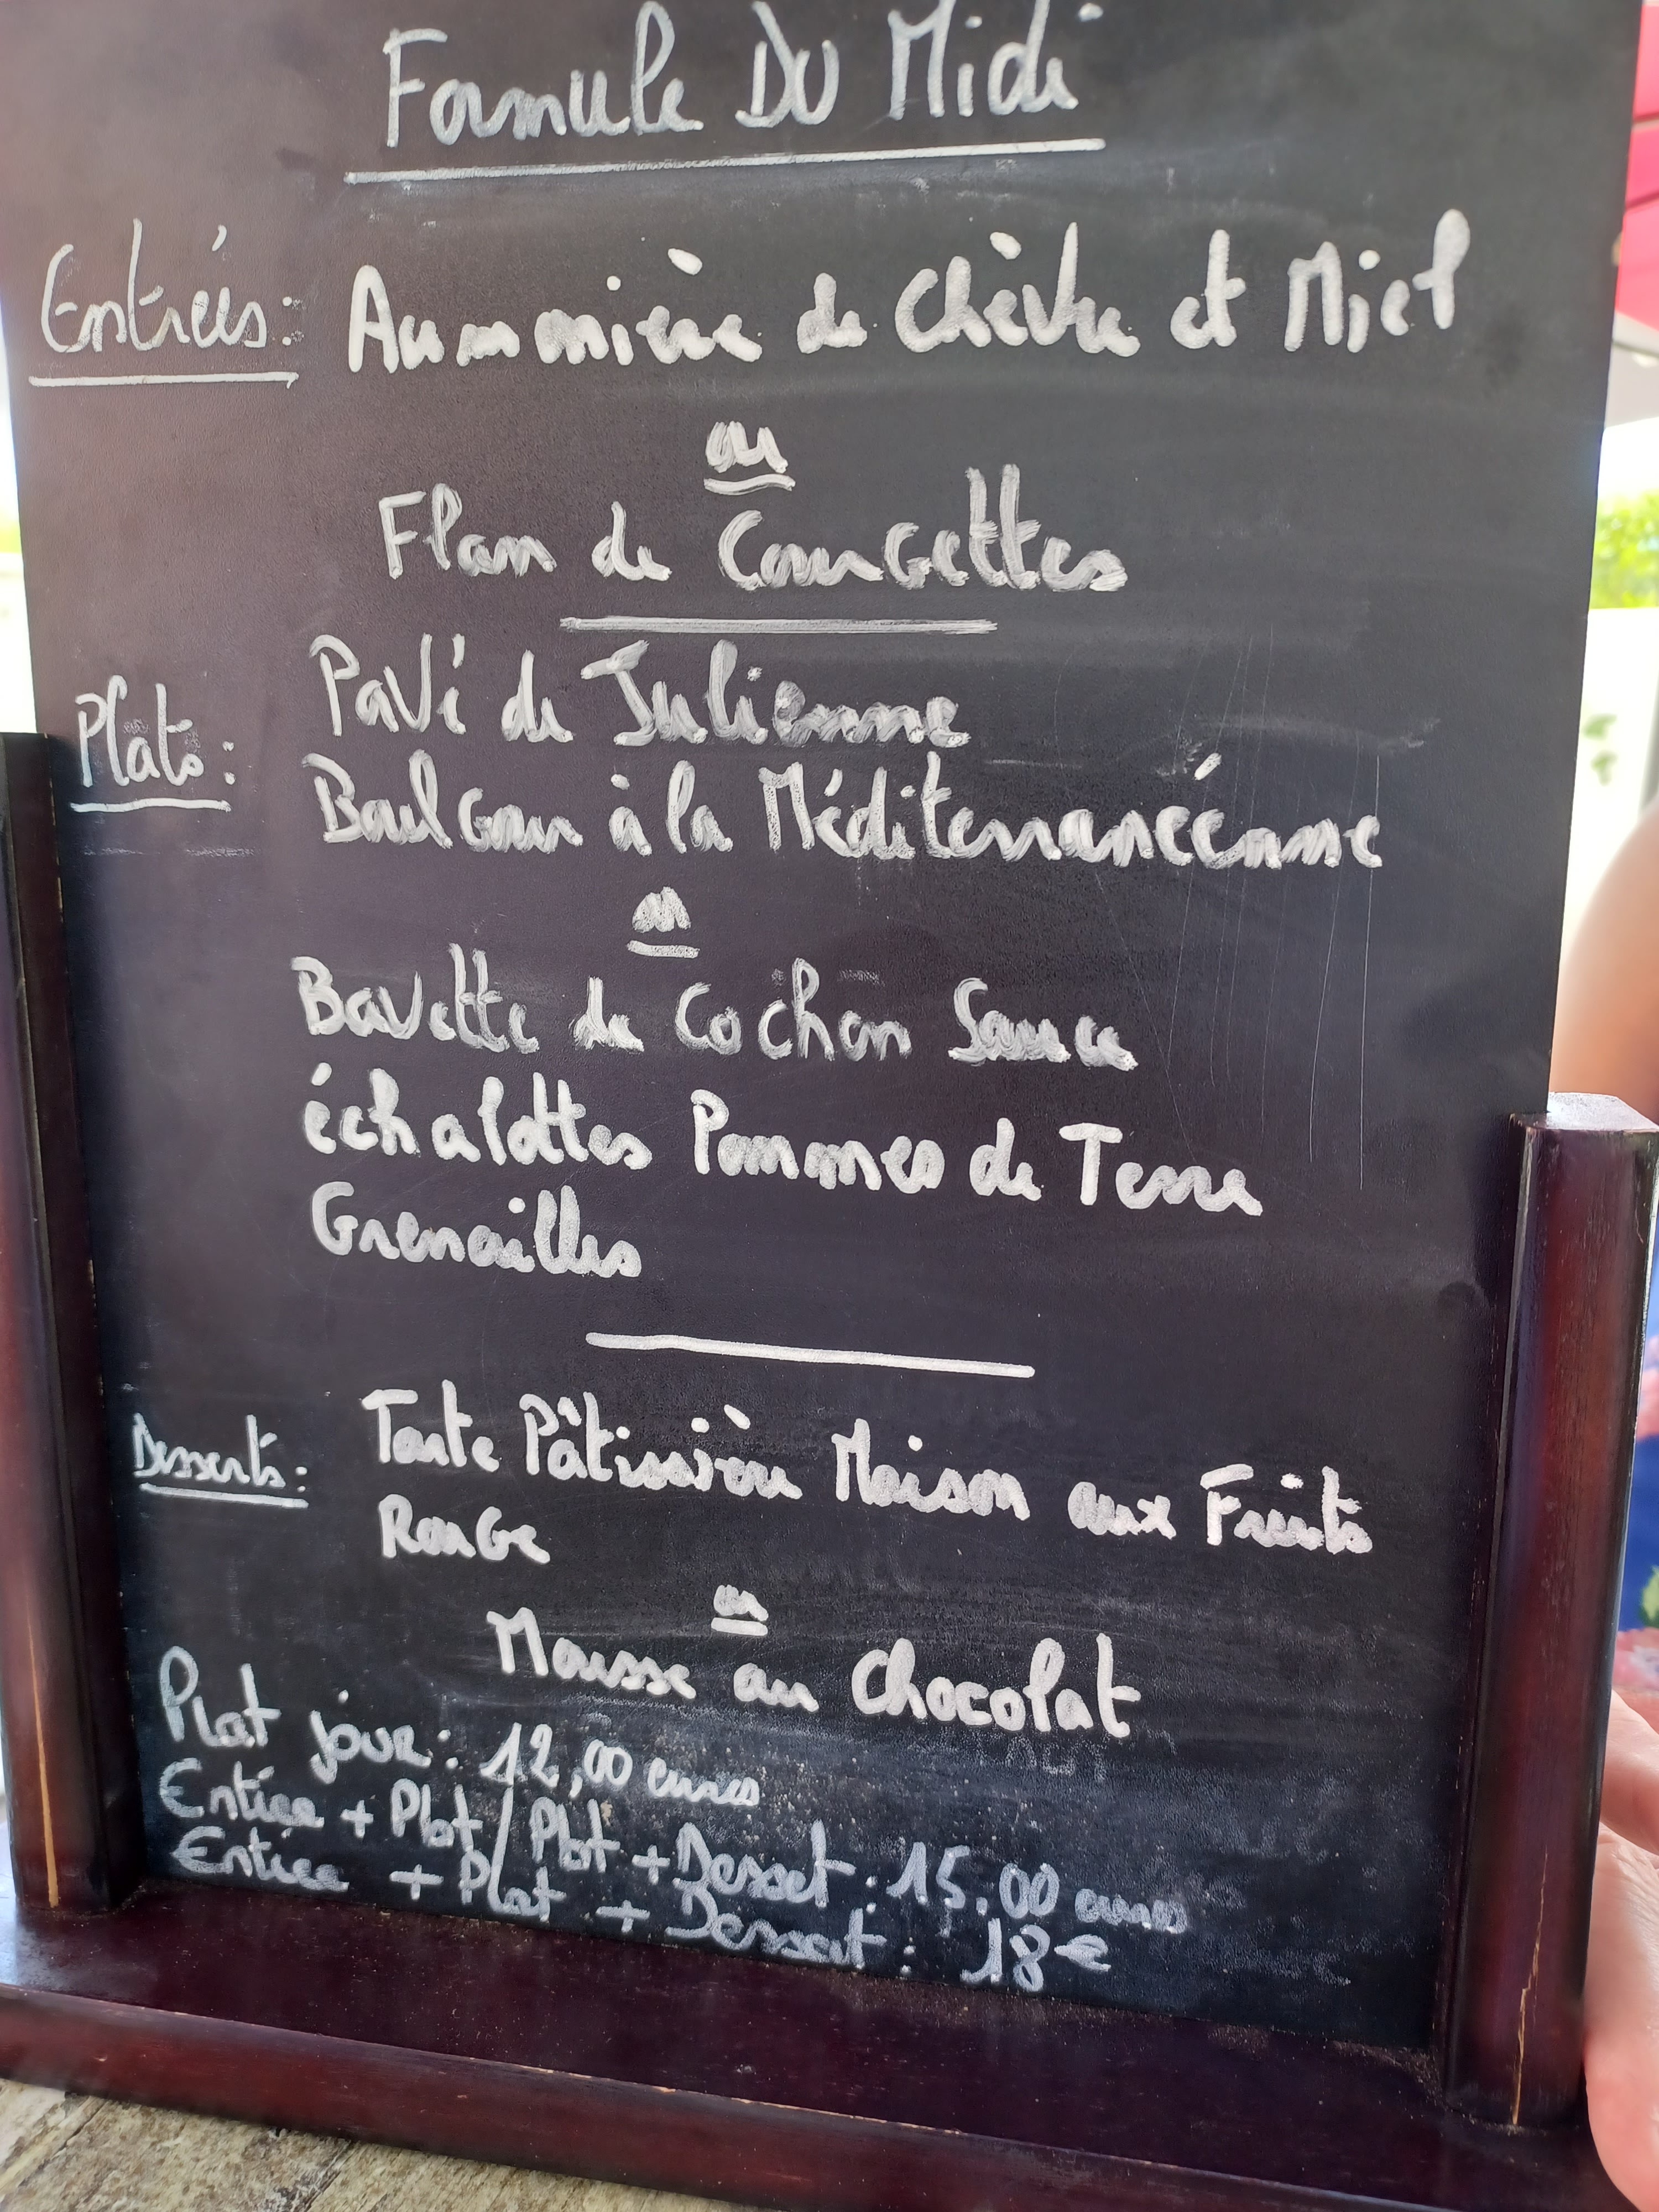 Formule Du Midi
Entrées: Aummonière de Chèvre et Miel
ou
Flan de Courgettes
Plats: Pavé de Julienne
Boulgour à la Méditerranéenne
ou
Bavette de Cochon Sauce
échalottes Pommes de Terre
Grenailles
Desserts: Tarte Pâtissière Maison aux Fruits
Rouge
ou
Mousse au Chocolat
Plat jour: 12,00 euros
Entrée + Plat / Plat + Dessert: 15,00 euros
Entrée + Plat + Dessert: 18€